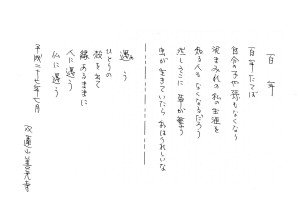 百年
百年たてば
自分の子や孫もなくなり
泥まみれの私の生涯を
知る人もなくなるだろう
淋しさに 草が繁り
虫が生きていたら おれはうれしいな
遇う
ひとりの
殻を出て
縁あるままに
人に遇う
仏に遇う
平成二十七年七月
双蓮山善光寺